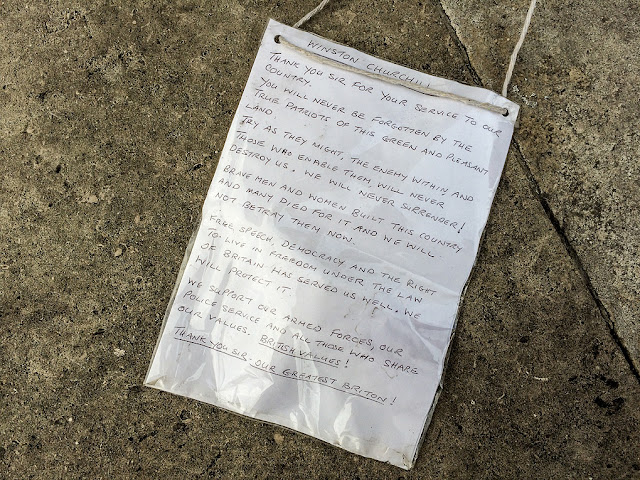 WINSTON CHURCHILL
THANK YOU SIR FOR YOUR SERVICE TO OUR
COUNTRY.
YOU WILL NEVER BE FORGOTTEN BY THE
TRUE PATRIOTS OF THIS GREEN AND PLEASANT
LAND.
TRY AS THEY MIGHT, THE ENEMY WITHIN AND
THOSE WHO ENABLE THEM, WILL NEVER
DESTROY US. WE WILL NEVER SURRENDER!
BRAVE MEN AND WOMEN BUILT THIS COUNTRY
AND MANY DIED FOR IT AND WE WILL
NOT BETRAY THEM NOW.
FREE SPEECH, DEMOCRACY AND THE RIGHT
TO LIVE IN FREEDOM UNDER THE LAW
OF BRITAIN HAS SERVED US WELL. WE
WILL PROTECT IT
WE SUPPORT OUR ARMED FORCES, OUR
POLICE SERVICE AND ALL THOSE WHO SHARE
OUR VALUES. BRITISH VALUES!
THANK YOU SIR - OUR GREATEST BRITON!